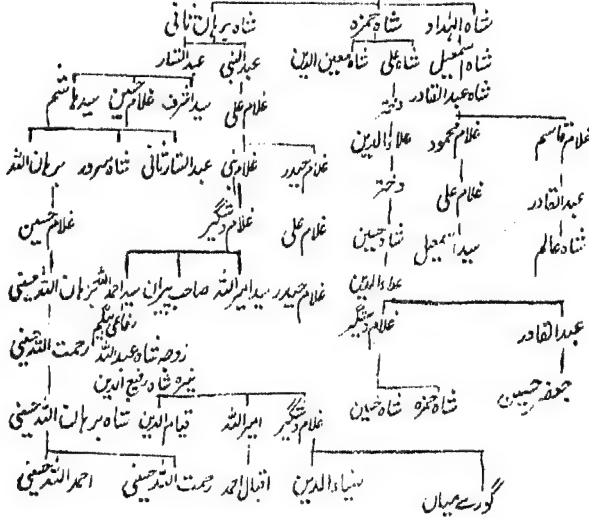 شاہ الہداد شاہ حمزہ شاہ برہان ثانی
شاہ سمٰعیل شاہ علی شاہ معین الدین عبدالنبی عبدالستار
شاہ عبدالقادر دختر غلام علی سید اشرف غلام حسین سید ہاشم
غلام قاسم غلام محمود علاء الدین غلام حیدر غلام نبی عبدالستار ثانی شاہ سرور برہان اللہ
عبدالقادر غلام علی دختر غلام علی غلام دستگیر غلام حسین
شاہ عالم سید اسمٰعیل شاہ حسین
علاء الدین غلام حیدر سید امیر اللہ صاحب پیران سید احمد اللہ برہان اللہ حسینی
عبدالقادر غلام دستگیر رفاعی بیگم
زوجہ شاہ عبداللہ رحمت اللہ حسینی
نبیرہ شاہ رفیع الدین
جعفر حسین شاہ حمزہ شاہ حسین غلام دستگیر امیر اللہ قیام الدین شاہ برہان اللہ حسینی
گورے میاں ضیاء الدین اقبال احمد رحمت اللہ حسینی احمد اللہ حسینی